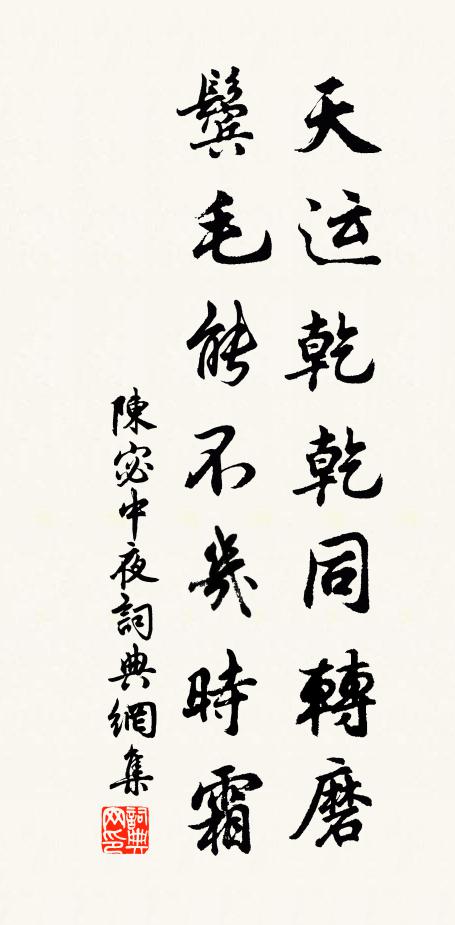 天运乾乾同轉磨
鬓毛能不幾時霜
陳宓中夜詞典網集
詞典网印